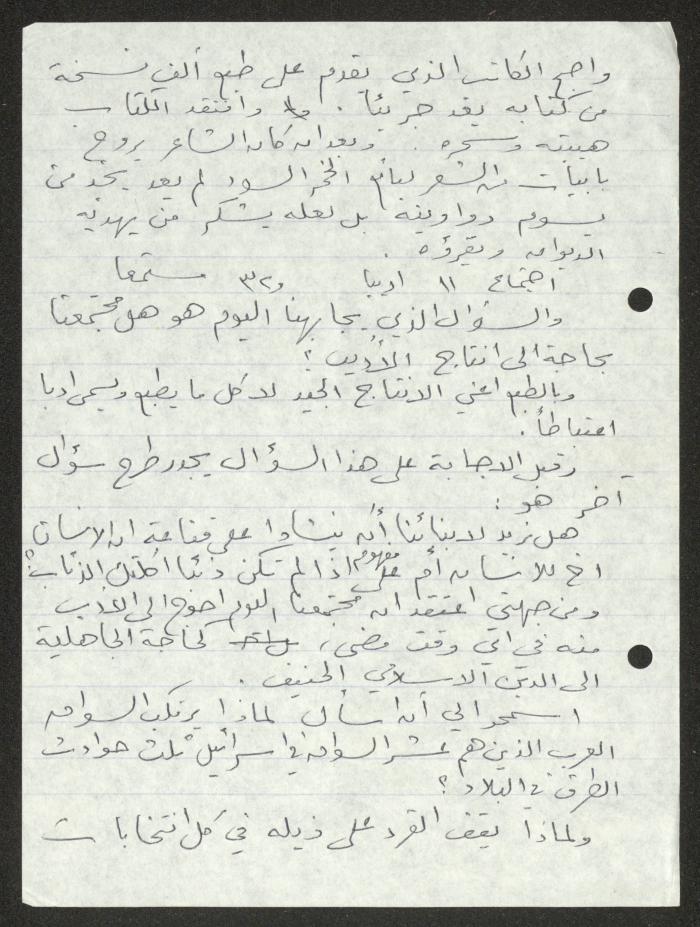 واصبح الكاتب الذي يقدم على طبع ألفي نسخة
من كتابه يعد جريئا. وافتقد الكتاب
هيبته وسحره. وبعد ان كان الشاعر يروج
بابيات من الشعر لبائع الخمر السود لم يعد يجد من
يسوم دواوينه بل لعله يشكر من يهديه
الديوان ويقرؤه.
اجتماع ١١ اديبا و٣٢ مستمعا
والسؤال الذي يجابهنا اليوم هو هل مجتمعنا
بحاجة الى انتاج الأديب؟
وبالطبع اعني الانتاج الجيد لا كل ما يطبع ويسمى ادبا
اعتباطاً.
وقبل الاجابة على هذا السؤال يجدر طرح سؤال
آخر هو:
هل نريد لابنائنا أن ينشأوا على قناعة ان الانسان
اخ للانسان أم على مفهوم اذا لم تكن ذئبا اكلتك الذئاب؟
ومن جهتي اعتقد ان مجتمعنا اليوم احوج الى الأدب
منه في اي وقت مضى، كحاجة الجاهلية
الى الدين الاسلامي الحنيف.
اسمحوا لي أن اسأل لماذا يرتكب السواق
العرب الذين هم عشر السواق في اسرائيل ثلث حوادث
الطرق في البلاد؟
ولماذا يقف القرد على ذيله في كل انتخابات